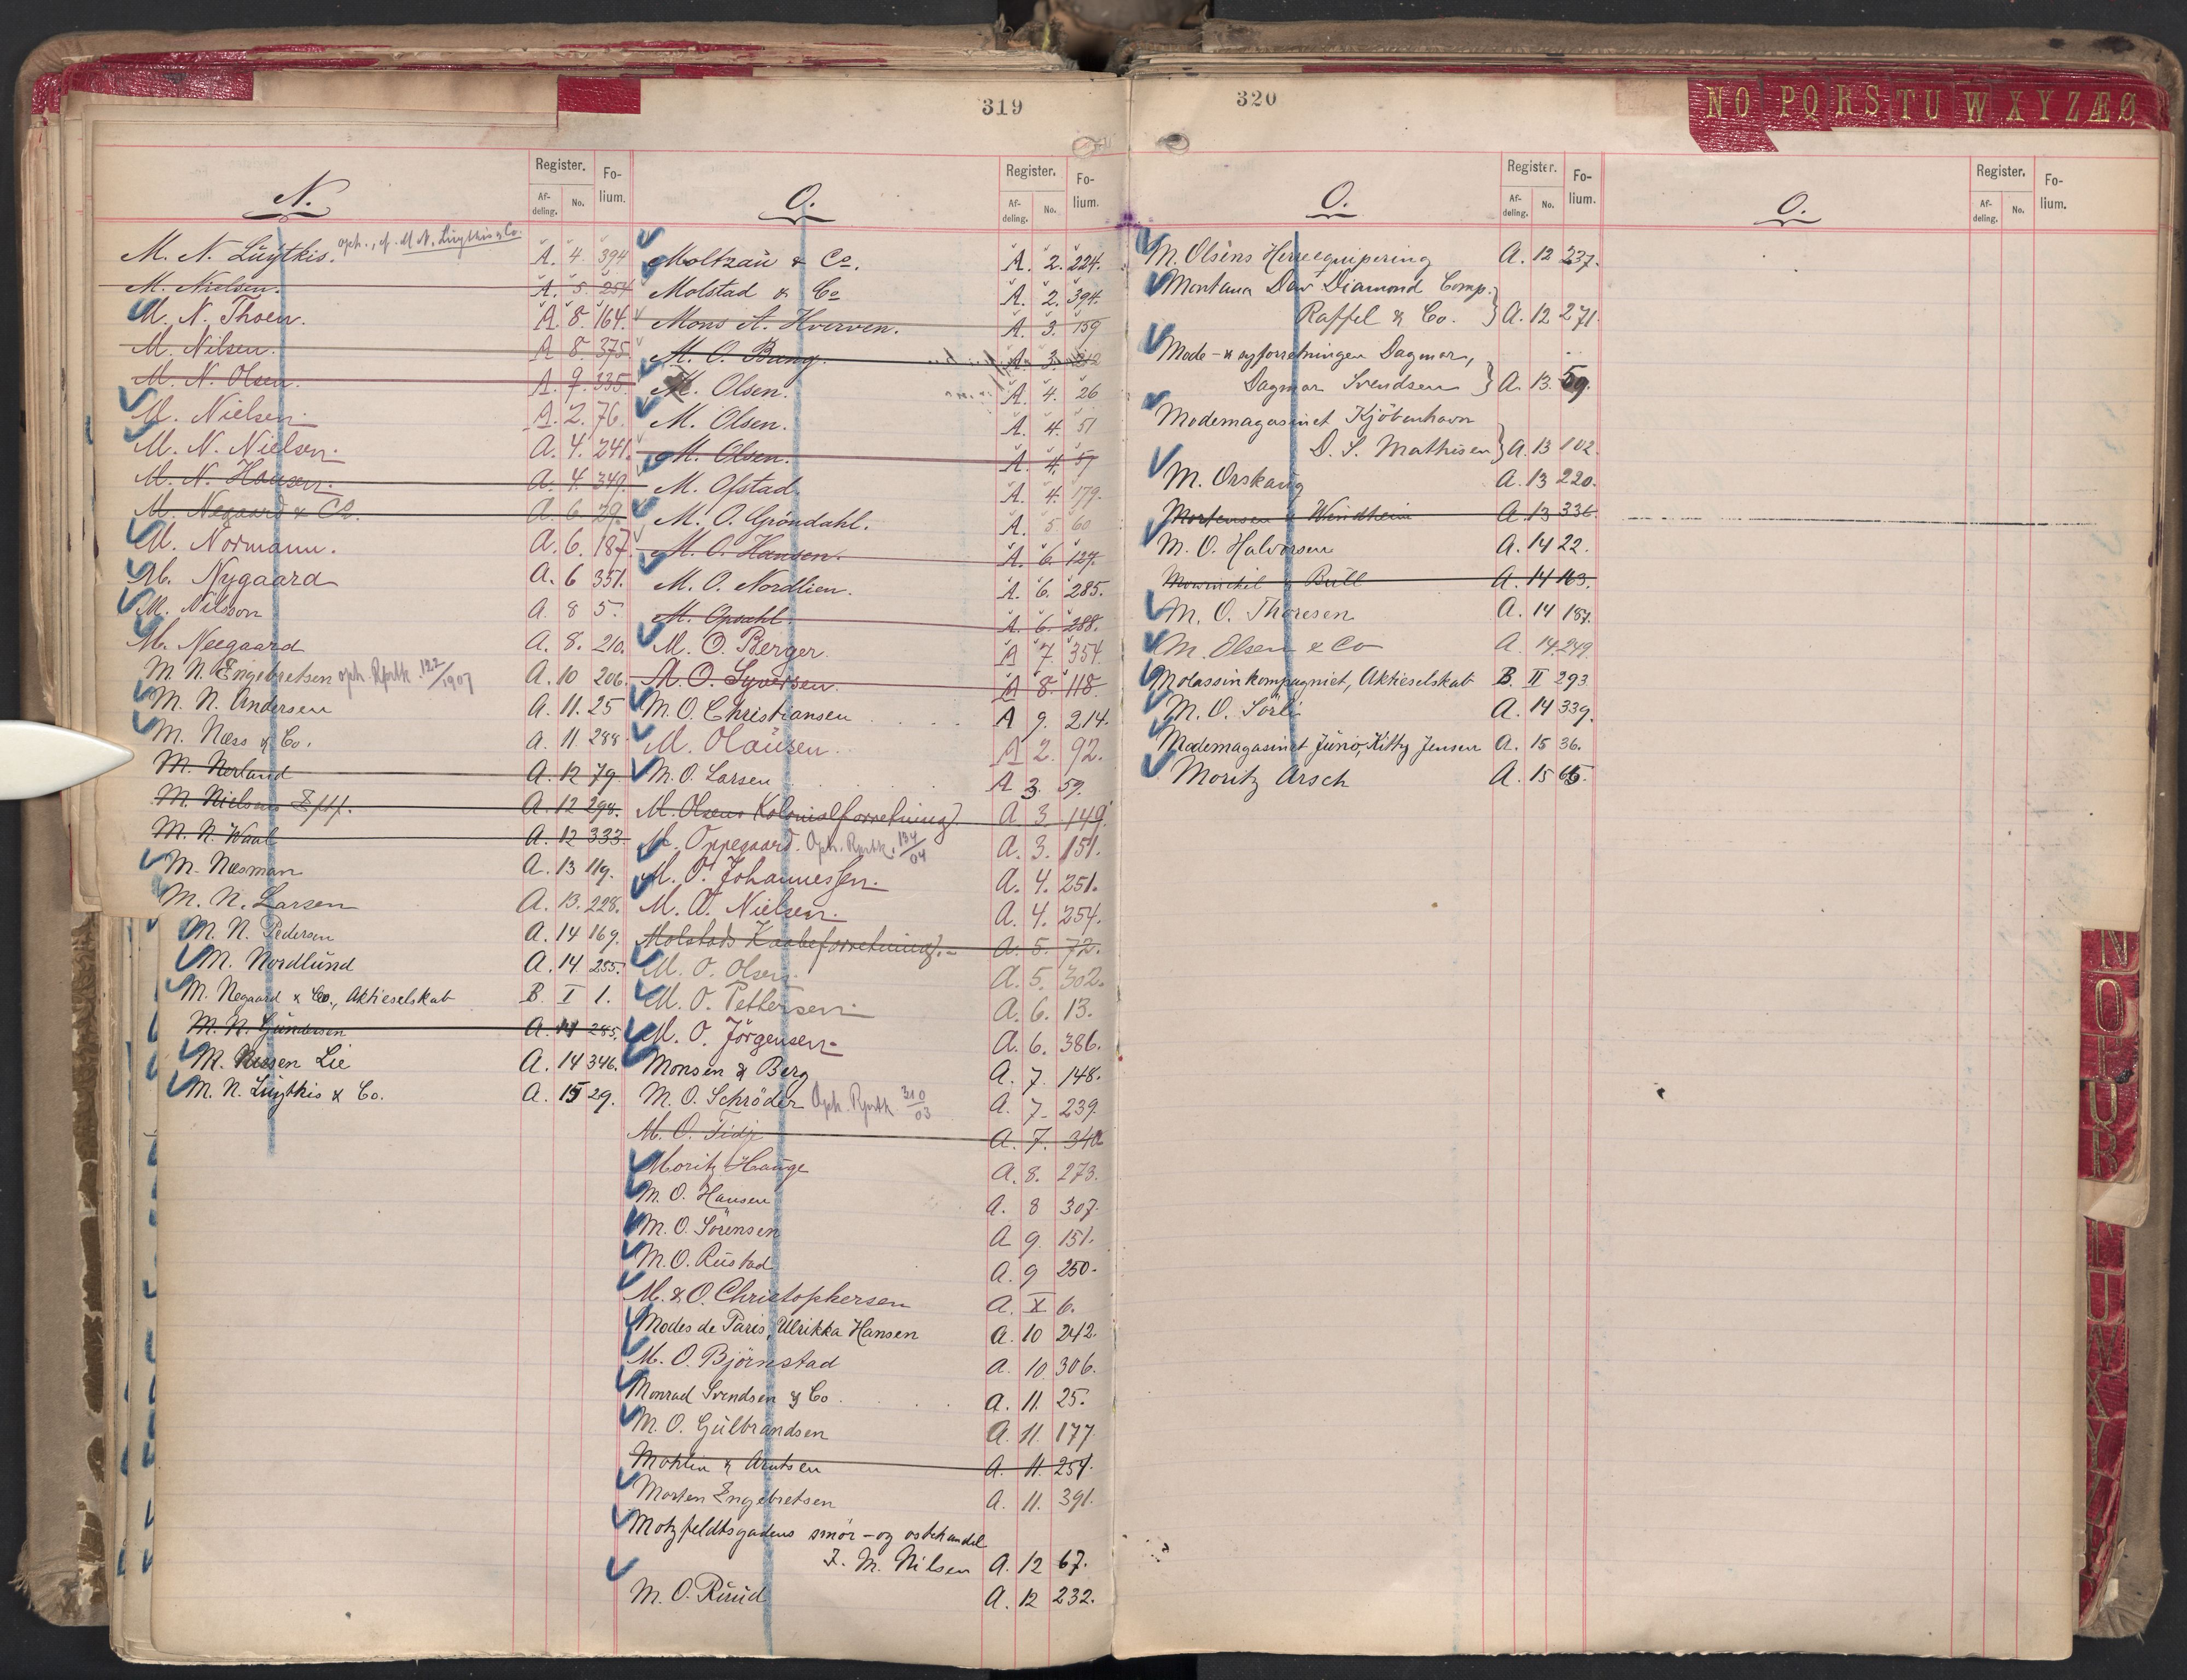 319
N.
Register. Folium.
Afdeling. No.
M. N. Luytkis. oph., cf. M. N. Luytkis & Co. A. 4. 394
M. Nielsen. A. 5. 254
M. N. Thoen. A. 8. 164.
M. Nilsen. A. 8. 375.
M. N. Olsen. A. 9. 335.
M. Nielsen A. 2. 76.
M. N. Nielsen. A. 4. 241.
M. N. Hansen. A. 4 349.
M. Negaard & Co. A. 6 39.
M. Normann. A. 6. 187.
M. Nygaard A. 6 351.
M. Nilsson A. 8 5.
M. Neegaard A. 8. 210.
M. N. Engebretsen oph. Rprtk. 122/1907 A. 10 206.
M. N. Andersen A. 11. 25
M. Næss & Co. A. 11 288.
M. Nerland A. 12 79.
M. Nielsens Eftf. A. 12 298.
M. N. Waal A. 12 333.
M. Næsman A. 13 119.
M. N. Larsen A. 13. 228.
M. N. Pedersen A. 14 169.
M. Nordlund A. 14 255.
M. Negaard & Co., Aktieselskab B. I 1.
M. N. Gundersen A. 14 285.
M. Nissen Lie A. 14 346.
M. N. Luytkis & Co. A. 15 29.
O.
Register. Folium.
Afdeling. No.
Moltzau & Co. A. 2. 224.
Molstad & Co A. 2. 394.
Mons A. Hverven. A. 3. 159
M. O. Bang. A. 3. 212
M. Olsen. A. 4. 26
M. Olsen. A. 4. 51
M. Olsen. A. 4. 57
M. Ofstad. A. 4. 179.
M. O. Gröndahl. A. 5 60
M. O. Hansen. A. 6. 127.
M. O. Nordlien. A. 6. 285.
M. Opsahl. A. 6. 288.
M. O. Berger. A 7. 354.
M. O. Syversen. A 8. 118.
M. O. Christiansen A 9. 214.
M. Olausen. A 2. 92.
M. O. Larsen A 3. 59.
M. Olsens Kolonialforretning. A. 3. 149.
M. Oppegaard. Oph. Rprtk. 134/04 A. 3. 151.
M. O. Johannessen. A. 4. 251.
M. O. Nielsen. A. 4. 254.
Molstads Kaabeforretning. A. 5. 72.
M. O. Olsen. A. 5. 302.
M. O. Pettersen. A. 6. 13.
M. O. Jörgensen. A. 6. 386.
Monsen & Berg A. 7. 148.
M. O. Schröder Oph. Rprtk 310/03 A. 7. 239.
M. O. Tidj A. 7. 340
Moritz Hauge A. 8. 273.
M. O. Hansen A. 8 307.
M. O. Sörensen A 9. 151.
M. O. Rustad A. 9 250.
M. & O. Christophersen A. X 6.
Modes de Paris, Ulrikka Hansen A. 10 242.
M. O. Björnstad A. 10 306.
Monrad Svendsen & Co. A. 11. 25.
M. O. Gulbrandsen A. 11. 177
Mohlin & Arntsen A. 11. 254.
Morten Engebretsen A. 11. 391.
Motzfeldtsgadens smör- og ostehandel
F. M. Nilsen A. 12 67.
M. O. Ruud A. 12 232.
320
N O P Q R S T U W X Y Z Æ Ø
O.
Register. Folium.
Afdeling. No.
M. Olsens Herreequipering A. 12 237.
Montana Daw Diamond Comp.
Raffel & Co. A. 12 271.
Mode- & syforretningen Dagmar,
Dagmar Svendsen A. 13. 59.
Modemagasinet Kjöbenhavn
D. S. Mathisen A. 13 102.
M. Orskaug A. 13 220.
Mortensen & Windheim A. 13 336.
M. O. Halvorsen A. 14 22.
Mowinckel & Bull A. 14 163.
M. O. Thoresen A. 14 187.
M. Olsen & Co A. 14. 249.
Molassinkompagniet, Aktieselskab B. II 293
M. O. Sörli A. 14 339.
Modemagasinet Juno, Kitty Jensen A. 15 36.
Moritz Arsch A. 15 65.
O.
Register. Folium.
Afdeling. No.